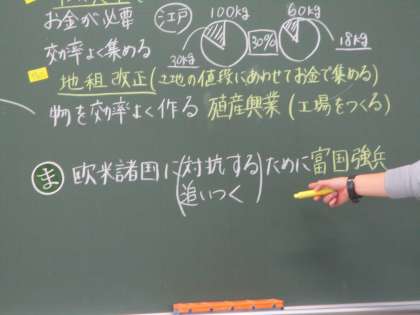 お金が必要 江戸 100kg 60kg
効率よく集める 30kg 30% 18kg
地租改正(土地の値段にあわせてお金で集める)
物を効率よく作る 殖産興業(工場をつくる)
ま 欧米諸国に(対抗する)ために富国強兵
追いつく